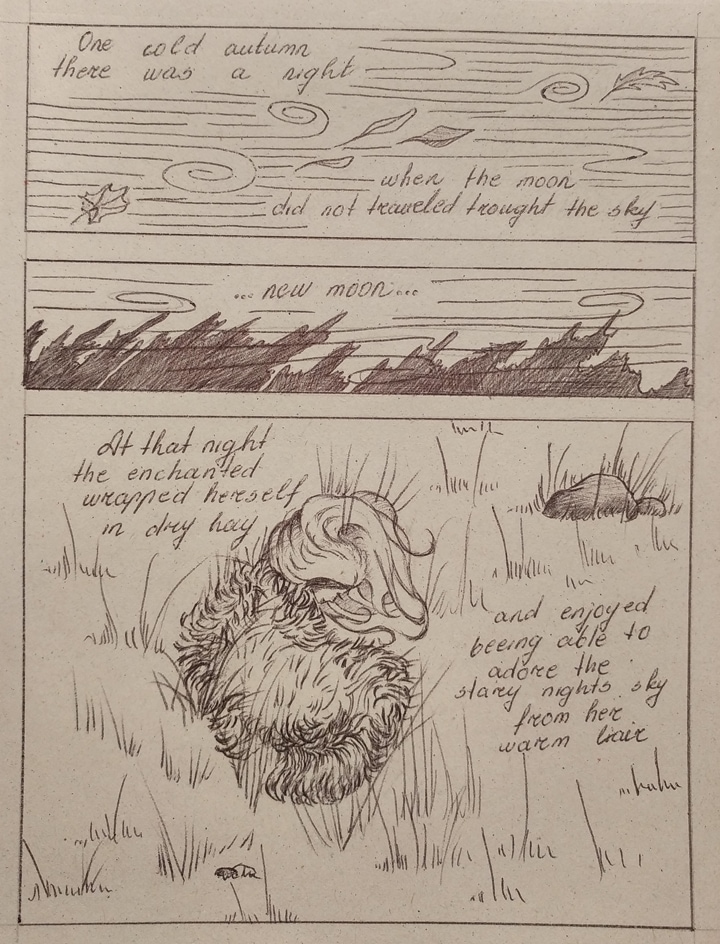 One cold autumn
there was a night
when the moon
did not traveled trought the sky
... new moon...
At that night
the enchanted
wrapped herself
in dry hay
and enjoyed
beeing able to
adore the
stary nights sky
from her
warm liair